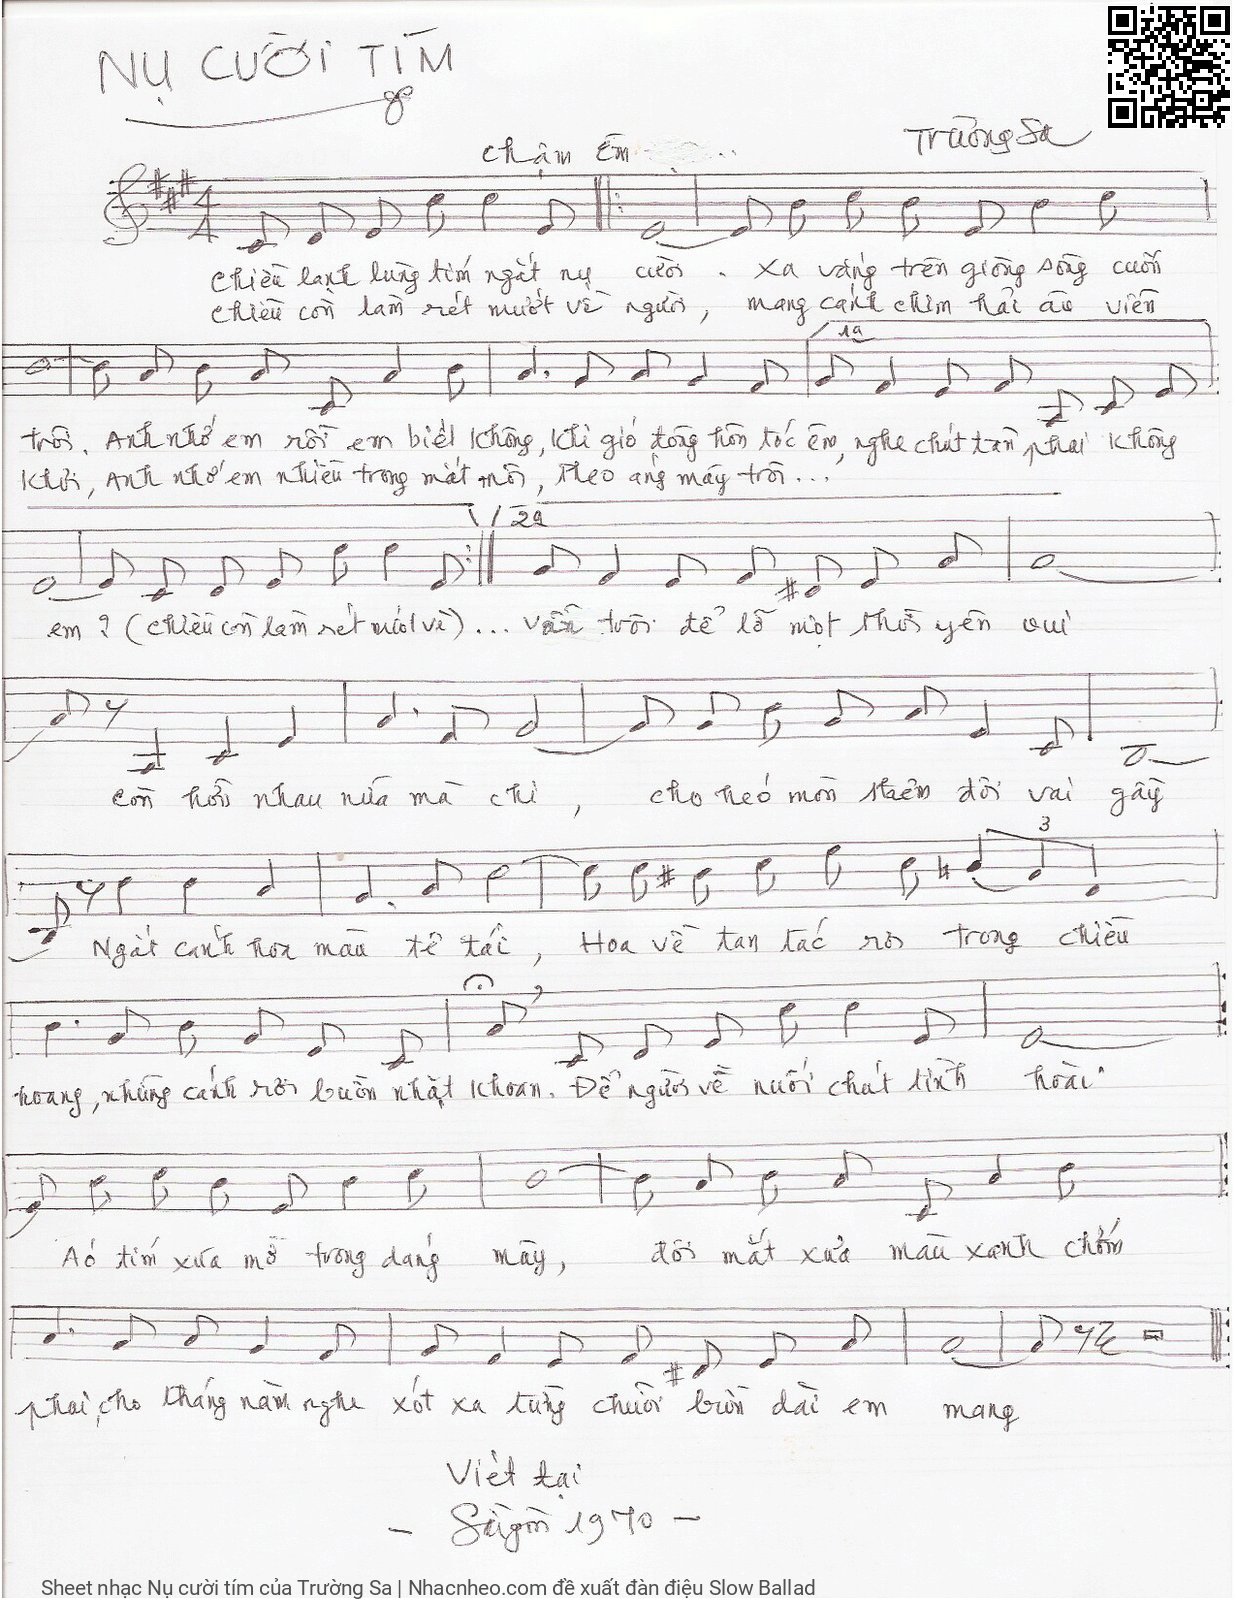 NỤ CƯỜI TÍM
Trường Sa
Chậm Êm ...
Chiều lạnh lùng tím ngắt nụ cười. Xa vắng trên giòng sông cuốn
Chiều còn làm rét mướt về người, mang cánh chim hải âu viễn
1a
trôi. Anh nhớ em rồi em biết không, khi gió đông hôn tóc êm, nghe chút tàn phai không
khơi, Anh nhớ em nhiều trong mắt môi, theo áng mây trôi...
2a
em? (Chiều còn làm rét mướt về)... Vẫn trôi để lỡ một thời yên vui
Còn hỏi nhau nữa mà chi, cho héo mòn thêm đôi vai gầy
3
Ngắt cánh hoa màu tê tái, Hoa về tan tác rơi trong chiều
hoang, những cánh rơi buồn nhặt khoan. Để người về nuối chút tình hoài
Áo tím xưa mờ trong dáng mây, đôi mắt xưa màu xanh chớm
phai, cho tháng năm nghe xót xa từng chuỗi buồn dài em mang
Viết tại
- Sàigòn 1970 -
Sheet nhạc Nụ cười tím của Trường Sa | Nhacnheo.com đề xuất đàn điệu Slow Ballad